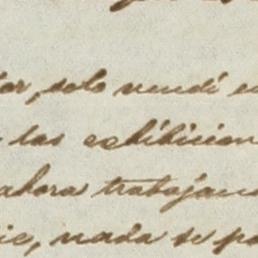 solo vendí
las exhibicion
ahora trabajan
nada se p